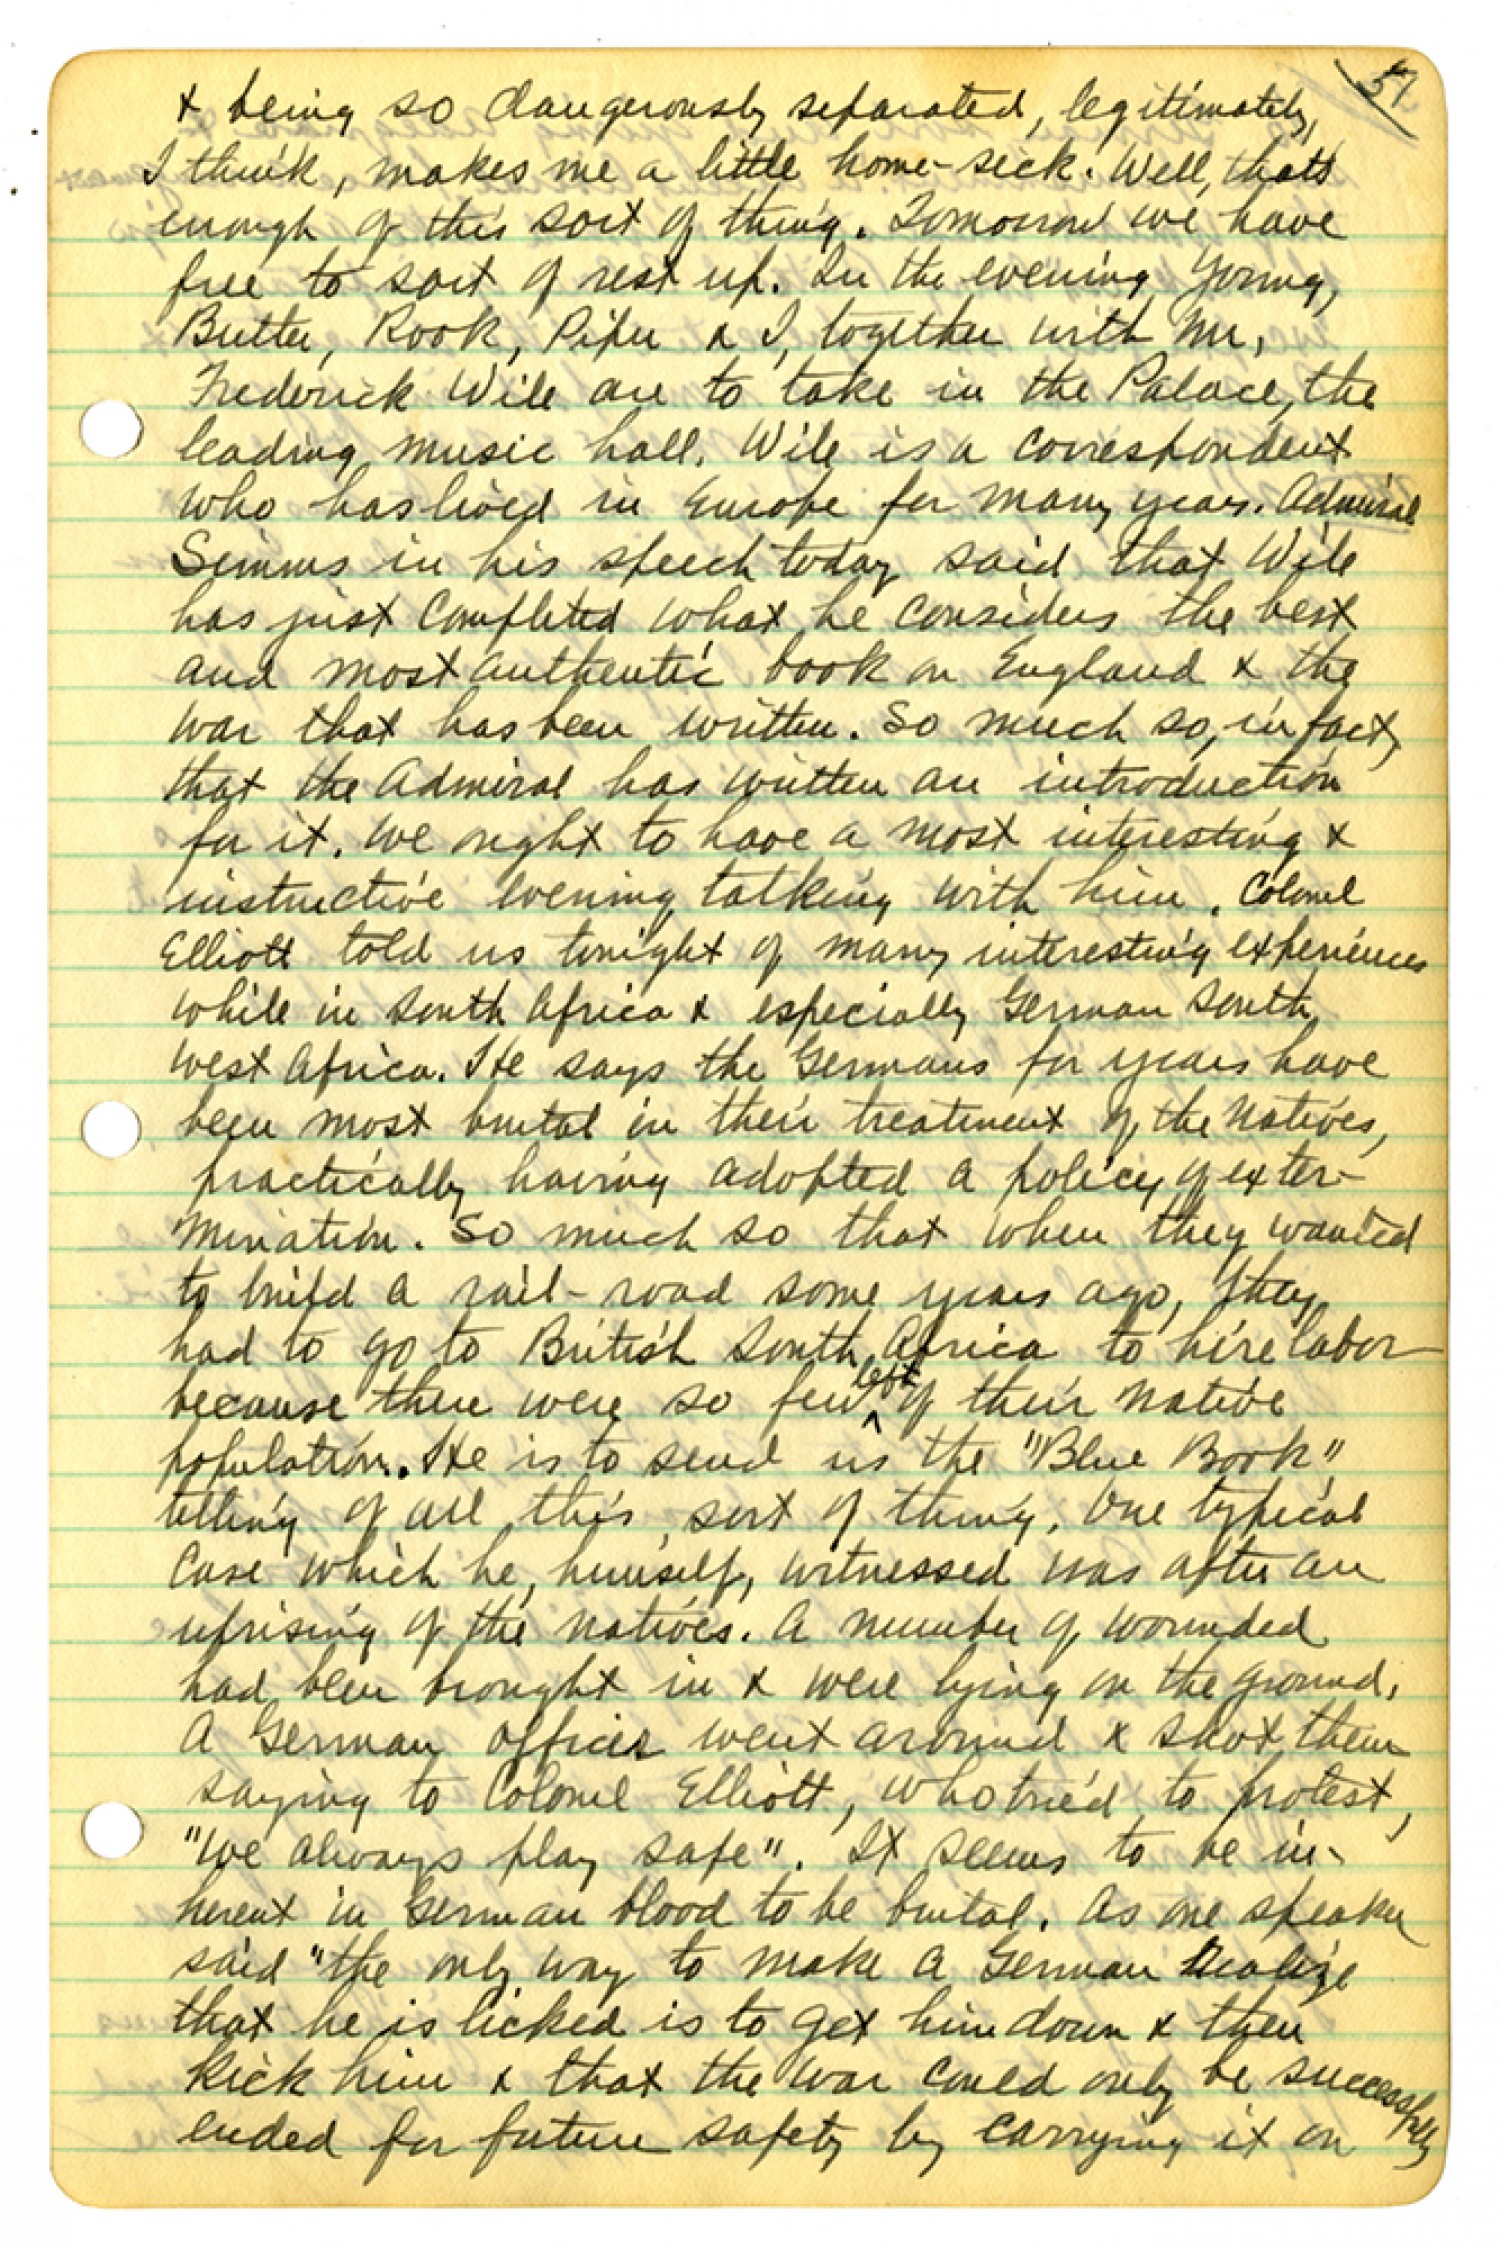 57
& being so dangerously separated, legitimately,
I think, makes me a little home-sick. Well, thats
enough of this sort of thing. Tomorrow we have
free to sort of rest up. In the evening Young,
Butler, Rook, Piper & I, together with Mr.
Frederick Wile are to take in the Palace, the
leading music hall. Wile is a correspondent
who has lived in Europe for many years. Admiral
Simms in his speech today said that Wile
has just completed what he considers the best
and most authentic book on England & the
war that has been written. So much so, in fact,
that the Admiral has written an introduction
for it. We ought to have a most interesting &
instructive evening talking with him. Colonel
Elliott told us tonight of many interesting experiences
while in South Africa & especially German South
West Africa. He says the Germans for years have
been most brutal in their treatment of the natives,
practically having adopted a policy of exter-
mination. So much so that when they wanted
to build a rail-road some years ago, they
had to go to British South Africa to hire labor
because there were so few left of their native
population. He is to send us the "Blue Book"
telling of all this sort of thing. One typical
case which he, himself, witnessed was after an
uprising of the natives. A number of wounded
had been brought in & were lying on the ground.
A German officer went around & shot them
saying to Colonel Elliott, who tried to protest,
"We always play safe". It seems to be in-
herent in German blood to be brutal. As one speaker
said "the only way to make a German realize
that he is licked is to get him down & then
kick him & that the war could only be successfully
ended for future safety by carrying it on